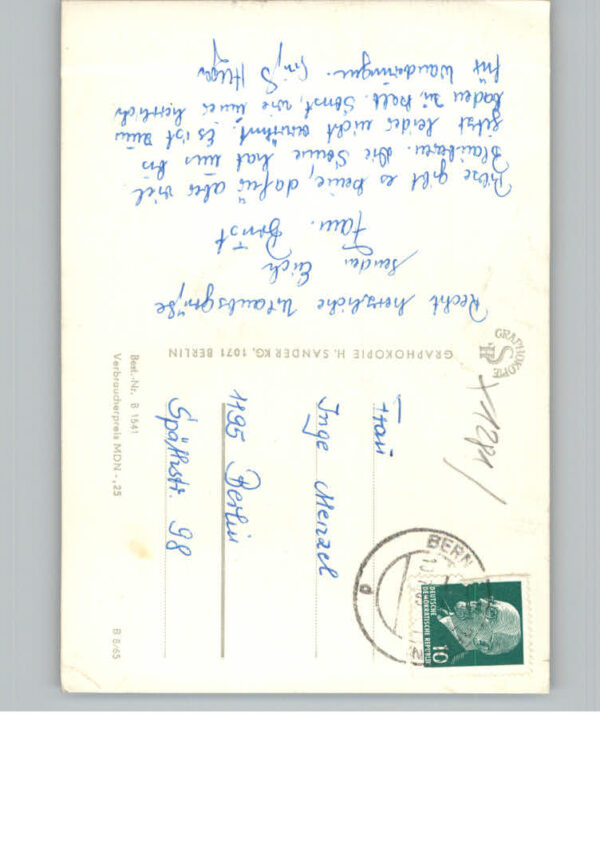 Recht herzliche Urlaubsgrüße
senden Euch
Fam. Ernst
gibt es keine, dafür aber viel
Blaubeeren. Die Sonne hat uns bis
jetzt leider nicht verwöhnt. Es ist zum
baden zu kalt. Sonst, wie immer herrlich
für Wanderungen.
GRAPHOKOPIE H. SANDER KG, 1071 BERLIN
GRAPHOKOPIE
HS
Frau
Inge Menzel
1195 Berlin
Späthstr. 98
Best.-Nr. B 1541
Verbraucherpreis MDN -,25
B 8/65
BERN
DEUTSCHE
DEMOKRATISCHE REPUBLIK
10